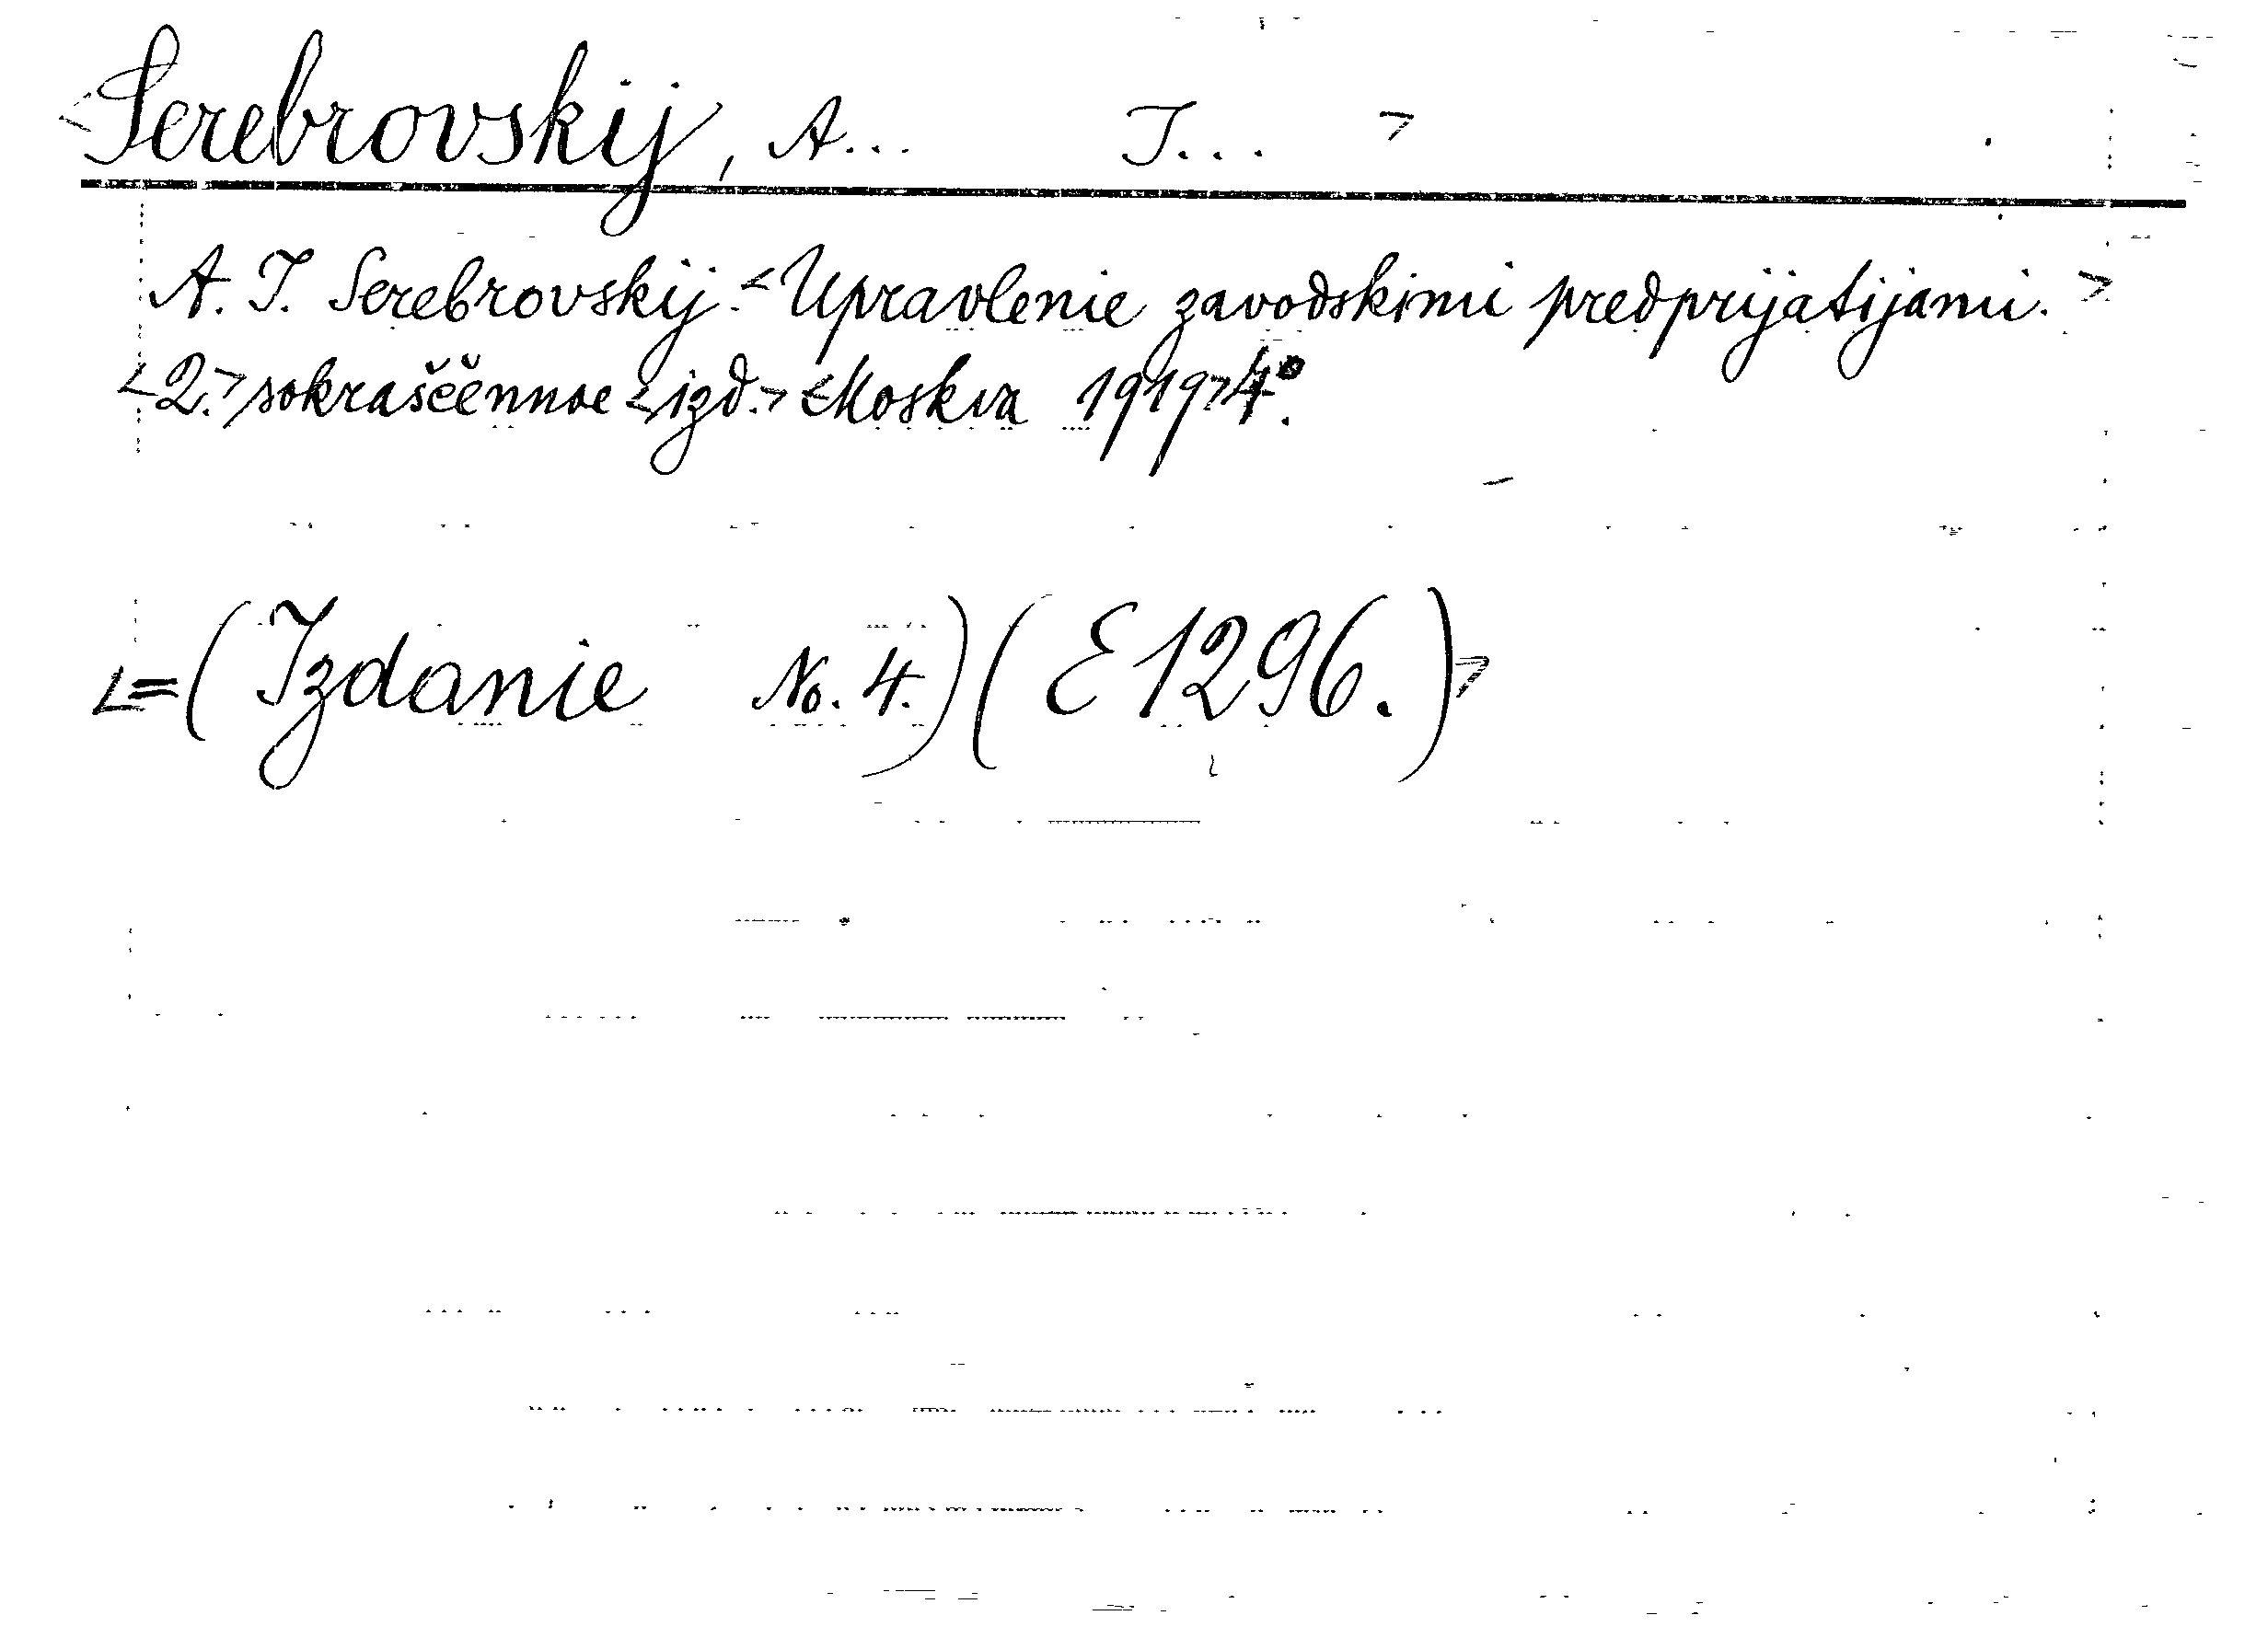 <Serebrovskij, A... I... >
A. I. Serebrovskij. <Upravlenie zavodskimi predprijatijami.>
<2.> sokraščënnoe <izd.> <Moskva 1919> 4°.
<=(Izdanie No. 4.)(E 1296.)>